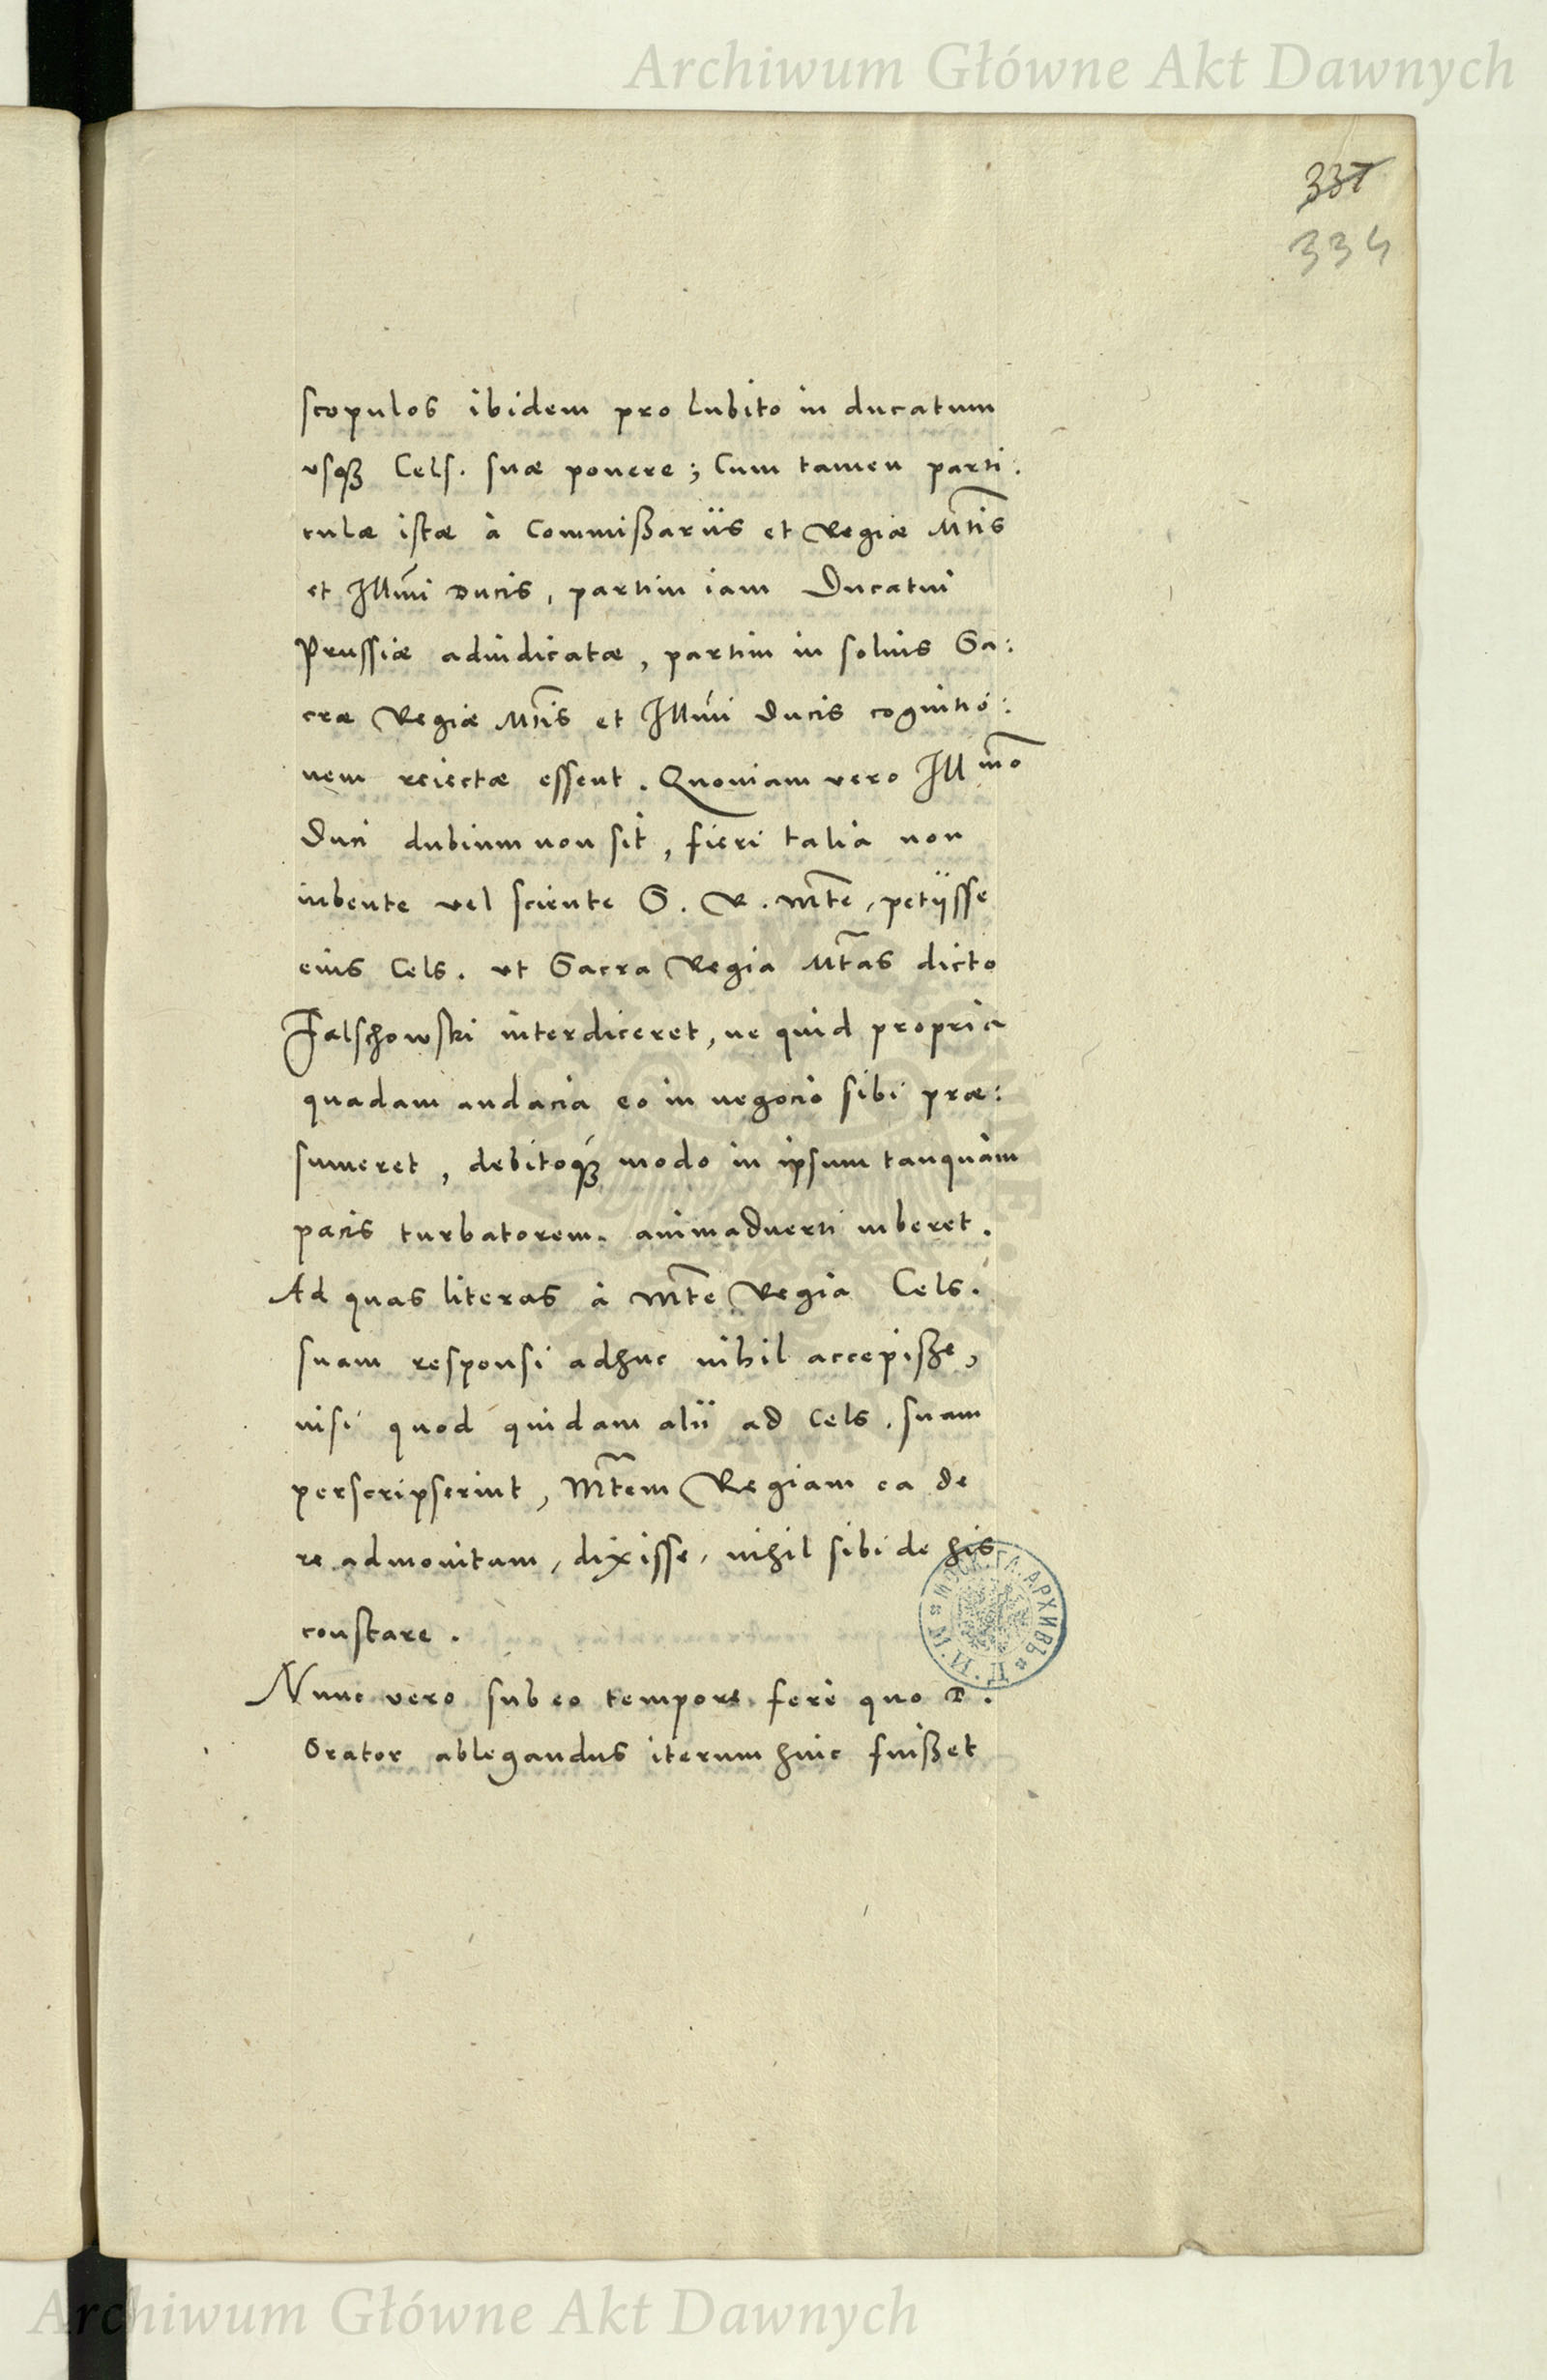 Archiwum Główne Akt Dawnych
331
334
scopulos ibidem pro lubito in ducatum
vsq&#773; Cels. suæ ponere; Cum tamen parti:
culæ istæ à Commißariis et Regiæ Mtis
et Illmi Ducis, partim iam Ducatui
Prussiæ adiudicatæ, partim in solius Sa:
cræ Regiæ Mtis et Illmi Ducis cognitio:
nem reiectæ essent. Quoniam vero Illmo
Duci dubium non sit, fieri talia non
iubente vel sciente S. R. Mte, petijsse
eius Cels. vt Sacra Regia Mtas dicto
Falschowski interdiceret, ne quid propria
quadam audacia eo in negocio sibi præ:
sumeret, debitoq&#773; modo in ipsum tanquàm
pacis turbatorem animaduerti iuberet.
Ad quas literas à Mte Regia Cels.
suam responsi adhuc nihil accepiße,
nisi quod quidam alii ad Cels. suam
perscripserint, Mtem Regiam ea de
re admonitam, dixisse, nihil sibi de his
constare.
Nunc vero sub eo tempore ferè quo D.
Orator ablegandus iterum huic fuißet
МОСК. ГЛ. АРХИВЪ
Archiwum Główne Akt Dawnych